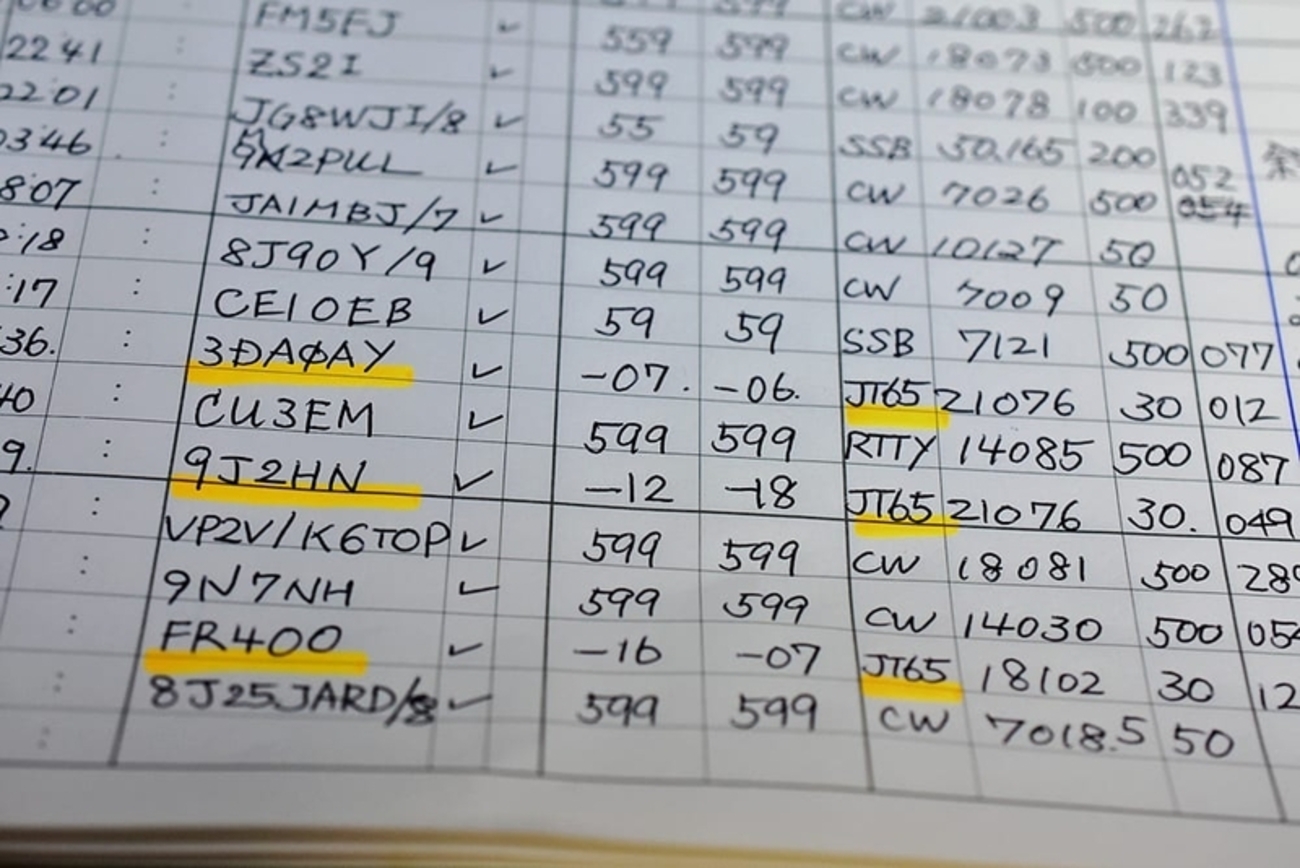 FM5FJ ✓ 559 599 CW 18073 500 123
22 41 : ZS2I ✓ 599 599 CW 18078 100 339
22 01 : JG8WJI/8 ✓ 55 59 SSB 50.165 200
03:46 : 5X2PULL ✓ 599 599 CW 7026 500 052
8:07 : JA1MBJ/7 ✓ 599 599 CW 10127 50
:18 : 8J90Y/9 ✓ 599 599 CW 7009 50
:17 : CE1OEB ✓ 59 59 SSB 7121 500 077
36. : 3DAØAY ✓ -07. -06. JT65 21076 30 012
40 : CU3EM ✓ 599 599 RTTY 14085 500 087
9. : 9J2HN ✓ -12 -18 JT65 21076 30. 049
: VP2V/K6TOP ✓ 599 599 CW 18081 500 28
: 9N7NH ✓ 599 599 CW 14030 500 054
: FR400 ✓ -16 -07 JT65 18102 30 12
: 8J25JARD/8 ✓ 599 599 CW 7018.5 50